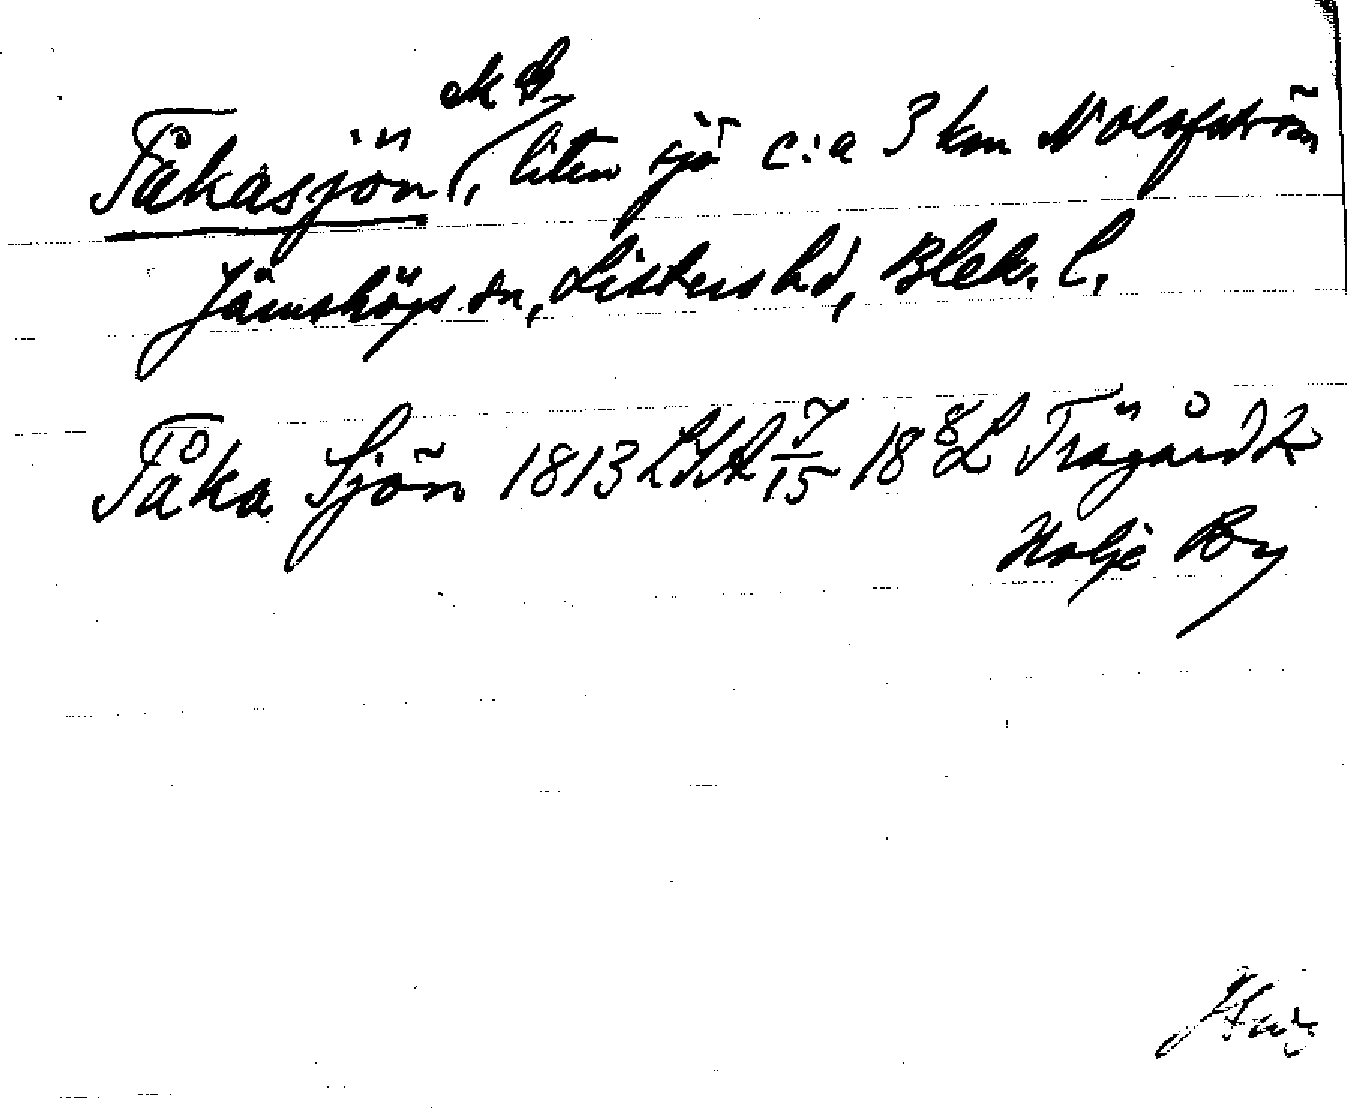 ek B
Tåkasjön, liten sjö c:a 3 km N Olofström
Jämshögs sn, Listers hd, Blek. l.
Tåka Sjön 1813 LSA 7/15 18 8 L Trägård &
Holje By